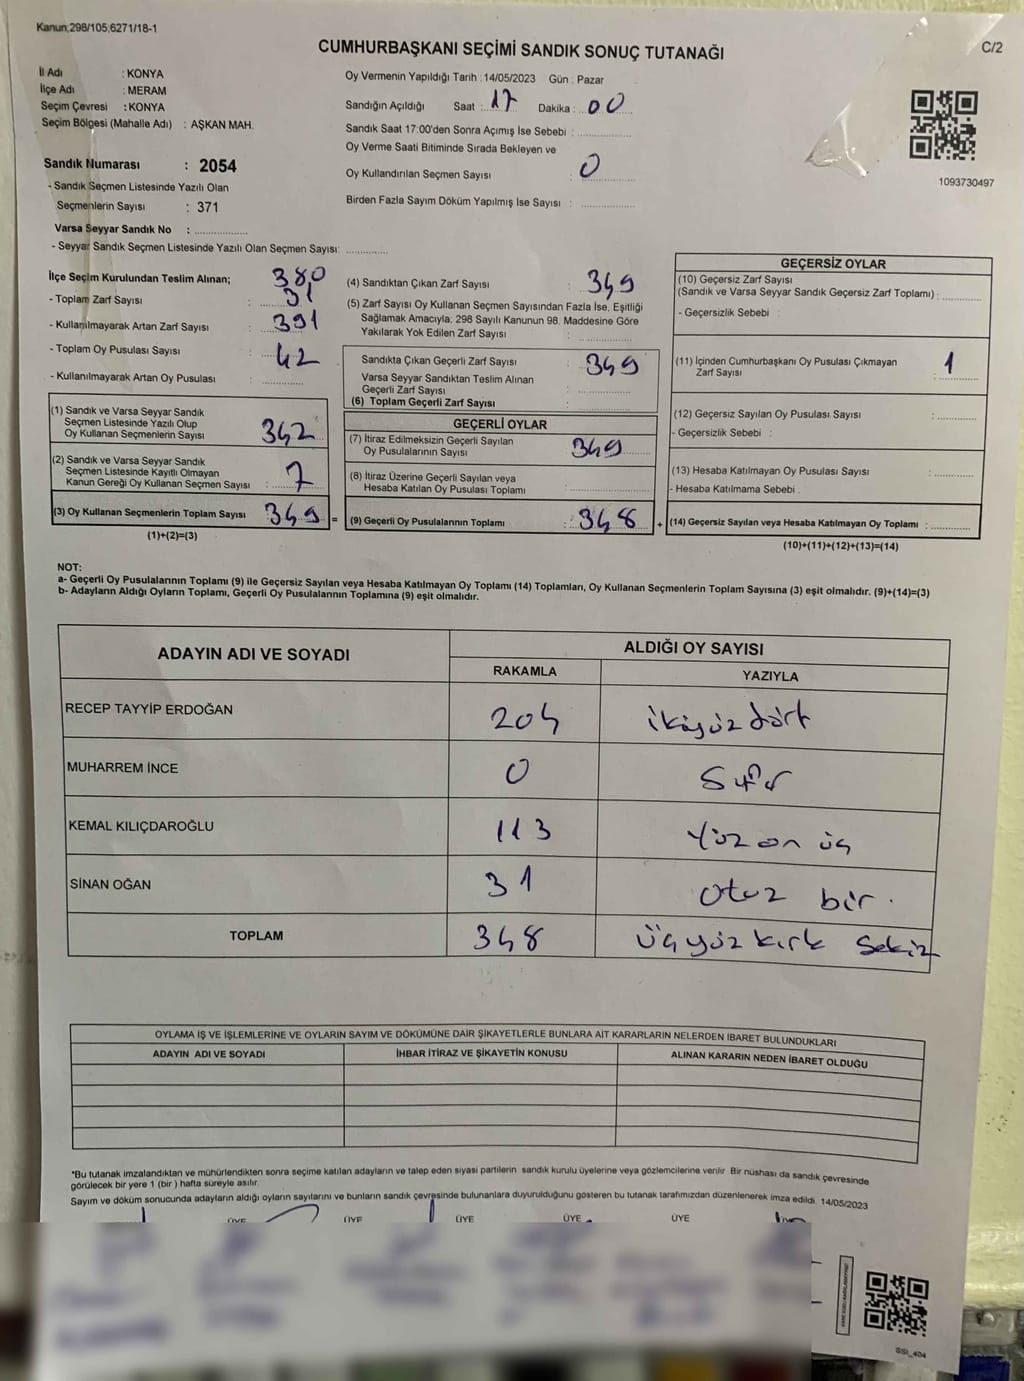 Kanun;298/105;6271/18-1
CUMHURBAŞKANI SEÇİMİ SANDIK SONUÇ TUTANAĞI
C/2
İl Adı : KONYA
İlçe Adı : MERAM
Seçim Çevresi : KONYA
Seçim Bölgesi (Mahalle Adı) : AŞKAN MAH.
Sandık Numarası : 2054
- Sandık Seçmen Listesinde Yazılı Olan
Seçmenlerin Sayısı : 371
Varsa Seyyar Sandık No : ..............
- Seyyar Sandık Seçmen Listesinde Yazılı Olan Seçmen Sayısı: ............
Oy Vermenin Yapıldığı Tarih : 14/05/2023 Gün : Pazar
Sandığın Açıldığı Saat : 17 Dakika : 00
Sandık Saat 17:00'den Sonra Açımış İse Sebebi : ..............
Oy Verme Saati Bitiminde Sırada Bekleyen ve
Oy Kullandırılan Seçmen Sayısı : 0
Birden Fazla Sayım Döküm Yapılmış İse Sayısı : ..............
1093730497
İlçe Seçim Kurulundan Teslim Alınan; 380
- Toplam Zarf Sayısı : 31
- Kullanılmayarak Artan Zarf Sayısı : 391
- Toplam Oy Pusulası Sayısı : 42
- Kullanılmayarak Artan Oy Pusulası : ..............
(1) Sandık ve Varsa Seyyar Sandık
Seçmen Listesinde Yazılı Olup
Oy Kullanan Seçmenlerin Sayısı 342
(2) Sandık ve Varsa Seyyar Sandık
Seçmen Listesinde Kayıtlı Olmayan
Kanun Gereği Oy Kullanan Seçmen Sayısı : 7
(3) Oy Kullanan Seçmenlerin Toplam Sayısı 349 =
(1)+(2)=(3)
(4) Sandıktan Çıkan Zarf Sayısı : 349
(5) Zarf Sayısı Oy Kullanan Seçmen Sayısından Fazla İse, Eşitliği
Sağlamak Amacıyla; 298 Sayılı Kanunun 98. Maddesine Göre
Yakılarak Yok Edilen Zarf Sayısı : ..............
Sandıkta Çıkan Geçerli Zarf Sayısı : 349
Varsa Seyyar Sandıktan Teslim Alınan
Geçerli Zarf Sayısı : ..............
(6) Toplam Geçerli Zarf Sayısı : ..............
GEÇERLİ OYLAR
(7) İtiraz Edilmeksizin Geçerli Sayılan
Oy Pusulalarının Sayısı 349
(8) İtiraz Üzerine Geçerli Sayılan veya
Hesaba Katılan Oy Pusulası Toplamı : ..............
(9) Geçerli Oy Pusulalarının Toplamı : 348 +
GEÇERSİZ OYLAR
(10) Geçersiz Zarf Sayısı
(Sandık ve Varsa Seyyar Sandık Geçersiz Zarf Toplamı) : ............
- Geçersizlik Sebebi :
(11) İçinden Cumhurbaşkanı Oy Pusulası Çıkmayan
Zarf Sayısı : 1
(12) Geçersiz Sayılan Oy Pusulası Sayısı : ............
- Geçersizlik Sebebi :
(13) Hesaba Katılmayan Oy Pusulası Sayısı : ............
- Hesaba Katılmama Sebebi :
(14) Geçersiz Sayılan veya Hesaba Katılmayan Oy Toplamı : ............
(10)+(11)+(12)+(13)=(14)
NOT:
a- Geçerli Oy Pusulalarının Toplamı (9) ile Geçersiz Sayılan veya Hesaba Katılmayan Oy Toplamı (14) Toplamları, Oy Kullanan Seçmenlerin Toplam Sayısına (3) eşit olmalıdır. (9)+(14)=(3)
b- Adayların Aldığı Oyların Toplamı, Geçerli Oy Pusulalarının Toplamına (9) eşit olmalıdır.
ADAYIN ADI VE SOYADI ALDIĞI OY SAYISI
RAKAMLA YAZIYLA
RECEP TAYYİP ERDOĞAN 204 ikiyüz dört
MUHARREM İNCE 0 Sıfır
KEMAL KILIÇDAROĞLU 113 Yüz on üç
SİNAN OĞAN 31 otuz bir.
TOPLAM 348 Üçyüz kırk sekiz
OYLAMA İŞ VE İŞLEMLERİNE VE OYLARIN SAYIM VE DÖKÜMÜNE DAİR ŞİKAYETLERLE BUNLARA AİT KARARLARIN NELERDEN İBARET BULUNDUKLARI
ADAYIN ADI VE SOYADI İHBAR İTİRAZ VE ŞİKAYETİN KONUSU ALINAN KARARIN NEDEN İBARET OLDUĞU
*Bu tutanak imzalandıktan ve mühürlendikten sonra seçime katılan adayların ve talep eden siyasi partilerin sandık kurulu üyelerine veya gözlemcilerine verilir. Bir nüshası da sandık çevresinde
görülecek bir yere 1 (bir ) hafta süreyle asılır.
Sayım ve döküm sonucunda adayların aldığı oyların sayılarını ve bunların sandık çevresinde bulunanlara duyurulduğunu gösteren bu tutanak tarafımızdan düzenlenerek imza edildi. 14/05/2023
ÜYE ÜYE ÜYE ÜYE ÜYE
SSI_404